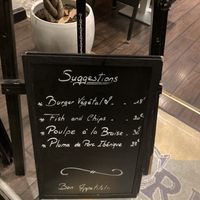 Suggestions
* Burger Végétal . . 18€
* Fish and Chips . . 20€
* Poulpe à la Braise . 30€
* Pluma de Porc Ibérique 28€
Bon Appétit!